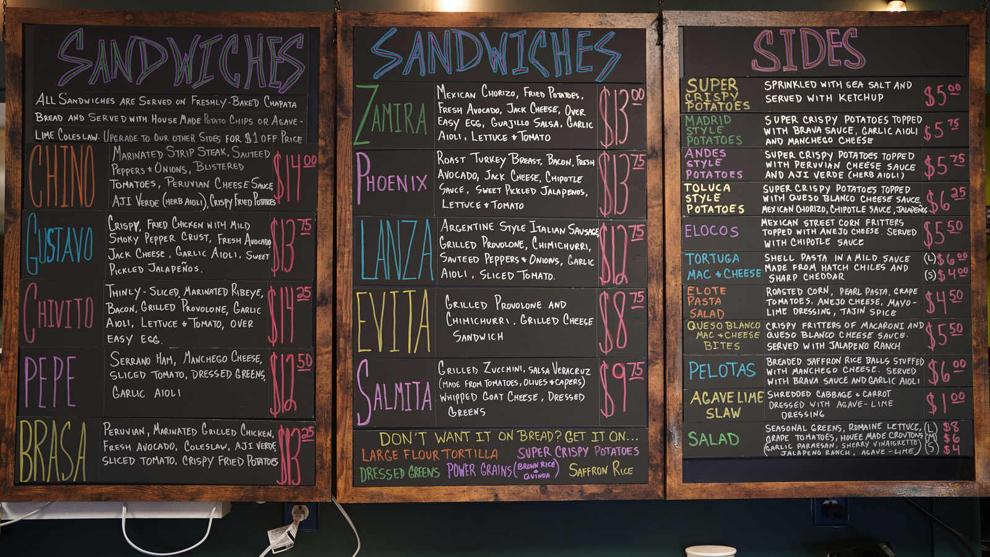 SANDWICHES
ALL SANDWICHES ARE SERVED ON FRESHLY-BAKED CHAPATA
BREAD AND SERVED WITH HOUSE MADE POTATO CHIPS OR AGAVE-
LIME COLESLAW. UPGRADE TO OUR OTHER SIDES FOR $1 OFF PRICE
CHINO
MARINATED STRIP STEAK, SAUTEED
PEPPERS + ONIONS, BLISTERED
TOMATOES, PERUVIAN CHEESE SAUCE
AJI VERDE (HERB AIOLI), CRISPY FRIED POTATOES
$14.00
GUSTAVO
CRISPY, FRIED CHICKEN WITH MILD
SMOKY PEPPER CRUST, FRESH AVOCADO
JACK CHEESE, GARLIC AIOLI, SWEET
PICKLED JALAPEÑOS.
$13 75
CHIVITO
THINLY-SLICED, MARINATED RIBEYE,
BACON, GRILLED PROVOLONE, GARLIC
AIOLI, LETTUCE + TOMATO, OVER
EASY EGG.
$14 25
PEPE
SERRANO HAM, MANCHEGO CHEESE,
SLICED TOMATO, DRESSED GREENS,
GARLIC AIOLI
$12 50
BRASA
PERUVIAN, MARINATED GRILLED CHICKEN,
FRESH AVOCADO, COLESLAW, AJI VERDE
SLICED TOMATO, CRISPY FRIED POTATOES
$13 25
SANDWICHES
ZAMIRA
MEXICAN CHORIZO, FRIED POTATOES,
FRESH AVOCADO, JACK CHEESE, OVER
EASY EGG, GUAJILLO SALSA, GARLIC
AIOLI, LETTUCE + TOMATO
$13 00
PHOENIX
ROAST TURKEY BREAST, BACON, FRESH
AVOCADO, JACK CHEESE, CHIPOTLE
SAUCE, SWEET PICKLED JALAPENOS,
LETTUCE + TOMATO
$13 75
LANZA
ARGENTINE STYLE ITALIAN SAUSAGE
GRILLED PROVOLONE, CHIMICHURRI,
SAUTEED PEPPERS + ONIONS, GARLIC
AIOLI, SLICED TOMATO.
$12 75
EVITA
GRILLED PROVOLONE AND
CHIMICHURRI, GRILLED CHEESE
SANDWICH
$8 75
SALMITA
GRILLED ZUCCHINI, SALSA VERACRUZ
(MADE FROM TOMATOES, OLIVES + CAPERS)
WHIPPED GOAT CHEESE, DRESSED
GREENS
$9 75
DON'T WANT IT ON BREAD? GET IT ON...
LARGE FLOUR TORTILLA SUPER CRISPY POTATOES
DRESSED GREENS POWER GRAINS (BROWN RICE + QUINOA) SAFFRON RICE
SIDES
SUPER
CRISPY
POTATOES
SPRINKLED WITH SEA SALT AND
SERVED WITH KETCHUP
$5 00
MADRID
STYLE
POTATOES
SUPER CRISPY POTATOES TOPPED
WITH BRAVA SAUCE, GARLIC AIOLI
AND MANCHEGO CHEESE
$5 75
ANDES
STYLE
POTATOES
SUPER CRISPY POTATOES TOPPED
WITH PERUVIAN CHEESE SAUCE
AND AJI VERDE (HERB AIOLI)
$5.75
TOLUCA
STYLE
POTATOES
SUPER CRISPY POTATOES TOPPED
WITH QUESO BLANCO CHEESE SAUCE,
MEXICAN CHORIZO, CHIPOTLE SAUCE, JALAPENOS
$6 25
ELOCOS
MEXICAN STREET CORN FRITTERS
TOPPED WITH ANEJO CHEESE. SERVED
WITH CHIPOTLE SAUCE
$5 50
TORTUGA
MAC + CHEESE
SHELL PASTA IN A MILD SAUCE
MADE FROM HATCH CHILES AND
SHARP CHEDDAR
(L) $6 00
(S) $4 00
ELOTE
PASTA
SALAD
ROASTED CORN, PEARL PASTA, GRAPE
TOMATOES, ANEJO CHEESE, MAYO-
LIME DRESSING, TAJIN SPICE
$4 50
QUESO BLANCO
MAC + CHEESE
BITES
CRISPY FRITTERS OF MACARONI AND
QUESO BLANCO CHEESE SAUCE.
SERVED WITH JALAPENO RANCH
$5 50
PELOTAS
BREADED SAFFRON RICE BALLS STUFFED
WITH MANCHEGO CHEESE. SERVED
WITH BRAVA SAUCE AND GARLIC AIOLI
$6 00
AGAVE LIME
SLAW
SHREDDED CABBAGE + CARROT
DRESSED WITH AGAVE-LIME
DRESSING
$1 00
SALAD
SEASONAL GREENS, ROMAINE LETTUCE,
GRAPE TOMATOES, HOUSE MADE CROUTONS
(GARLIC PARMESAN, SHERRY VINAIGRETTE,
JALAPENO RANCH, AGAVE-LIME)
(L) $8
(M) $6
(S) $4